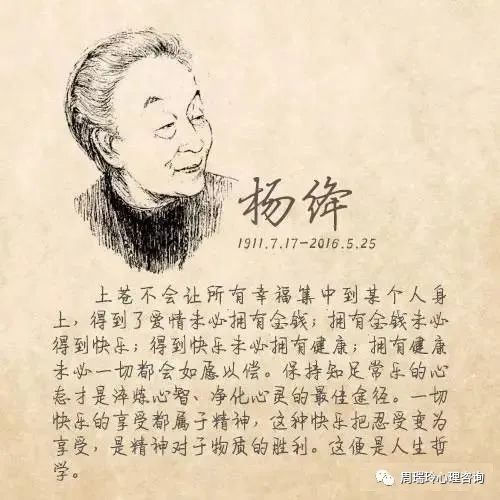 杨绛
1911.7.17-2016.5.25
上苍不会让所有幸福集中到某个人身
上，得到了爱情未必拥有金钱；拥有金钱未必
得到快乐；得到快乐未必拥有健康；拥有健康
未必一切都会如愿以偿。保持知足常乐的心
态才是淬炼心智、净化心灵的最佳途径。一切
快乐的享受都属于精神，这种快乐把忍受变为
享受，是精神对于物质的胜利。这便是人生哲
学。
周瑞玲心理咨询